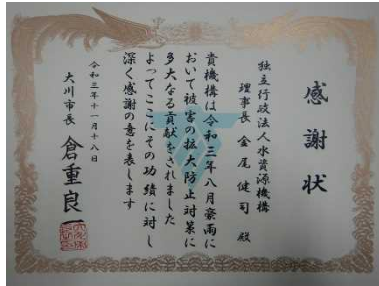 感謝状
独立行政法人水資源機構
理事長 金尾健司 殿
貴機構は令和三年八月豪雨に
おいて被害の拡大防止対策に
多大なる貢献をされました
よってここにその功績に対し
深く感謝の意を表します
令和三年十一月十八日
大川市長 倉重良一